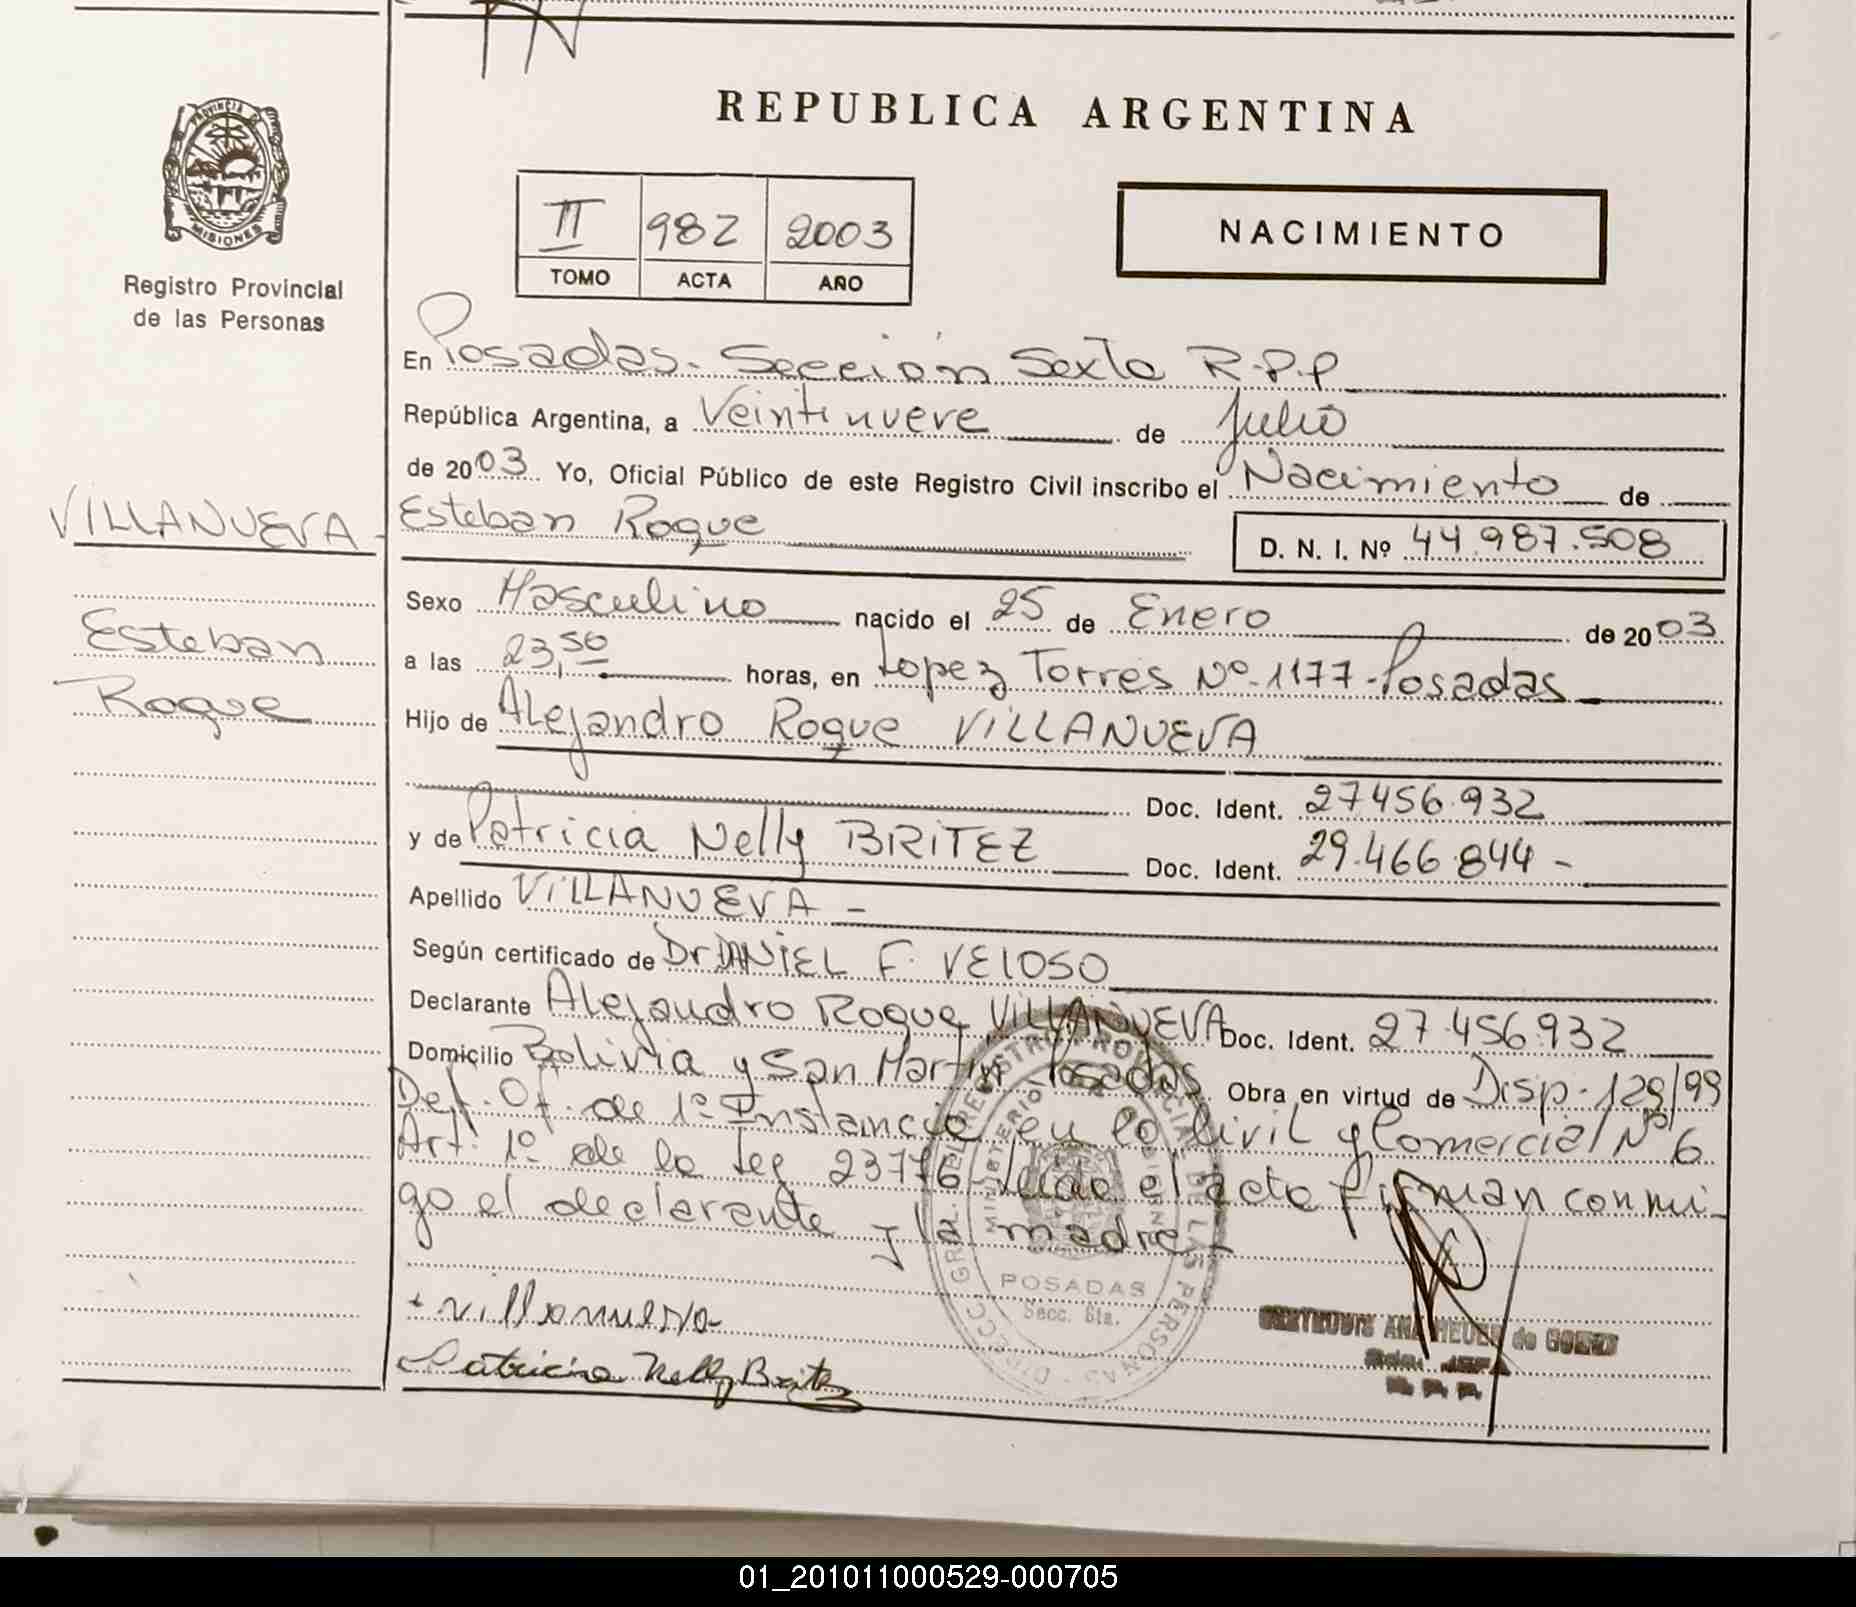 PROVINCIA DE
MISIONES
Registro Provincial
de las Personas
VILLANUEVA -
Esteban
Roque
REPUBLICA ARGENTINA
II 982 2003
TOMO ACTA AÑO
NACIMIENTO
En Posadas - Sección Sexta R.P.P
República Argentina, a Veintinueve de Julio
de 2003 Yo, Oficial Público de este Registro Civil inscribo el Nacimiento de
Esteban Roque D. N. I. Nº 44.987.508
Sexo Masculino nacido el 25 de Enero de 2003
a las 23,50 horas, en Lopez Torres Nº 1177 - Posadas
Hijo de Alejandro Roque VILLANUEVA
Doc. Ident. 27456.932
y de Patricia Nelly BRITEZ Doc. Ident. 29.466.844 -
Apellido VILLANUEVA -
Según certificado de Dr DANIEL F. VELOSO
Declarante Alejandro Roque VILLANUEVA Doc. Ident. 27.456.932
Domicilio Bolivia y San Martin - Posadas Obra en virtud de Disp. 129/99
Def. Of. de 1º Instancia en lo Civil y Comercial Nº 6
Art. 1º de la Ley 23776 Leída el acta firman conmi-
go el declarante y la madre -
DIRECC. GRAL. DEL REGISTRO PROVINCIAL DE LAS PERSONAS
MINISTERIO
POSADAS
Secc. 6ta.
Villanueva
Patricia Nelly Britez
GERTRUDIS ANA de GOMEZ
JEFA
R. P. P.
01_201011000529-000705